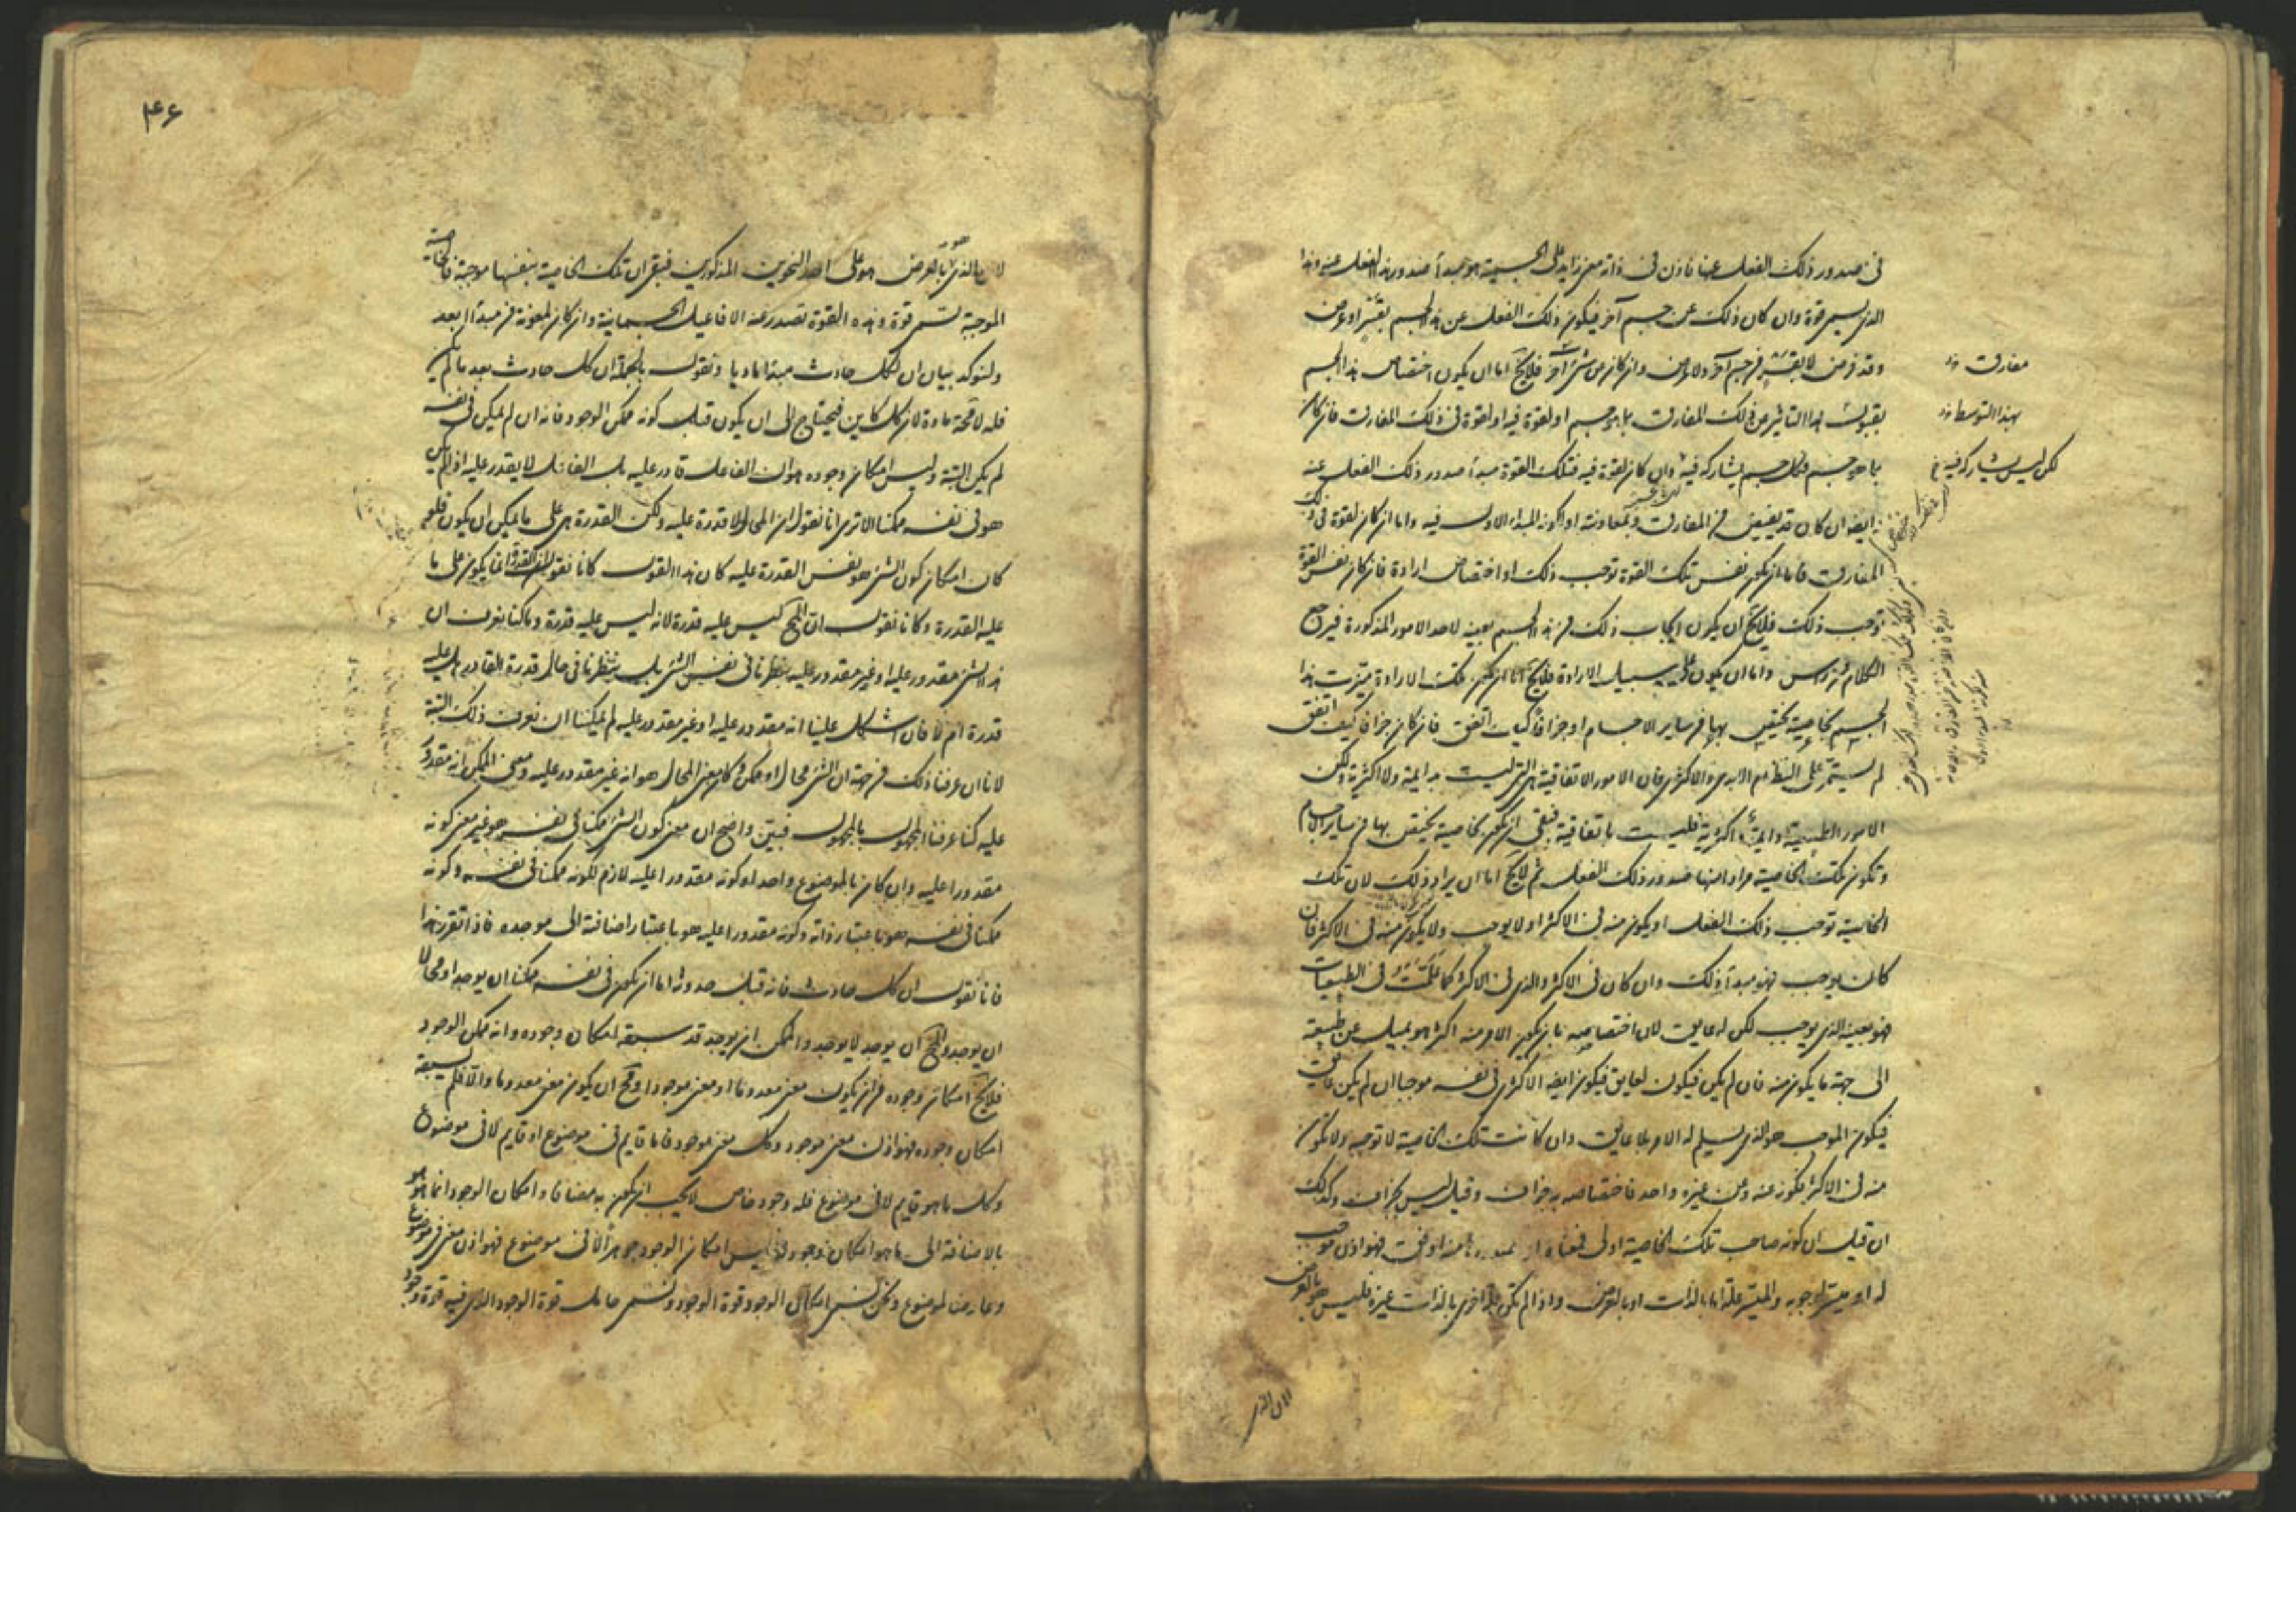 في صدور ذلك الفعل عنها فاذن في ذاته معنى زايد على الجسمية هو مبدأ صدور هذا الفعل عنه وهذا
الذي يسمى قوة وان كان ذلك عن جسم آخر فيكون ذلك الفعل عن هذا الجسم بقسر او عرض
وقد فرض لا بقسر من جسم آخر ولا عرض وان كان عن شئ آخر فلايخ اما ان يكون اختصاص هذا الجسم
مفارق
بقبول هذا التاثير عن ذلك المفارق بما هو جسم او لقوة فيه او لقوة في ذلك المفارق فان كان
بهذا التوسط
بما هو جسم فكل جسم يشاركه فيه وان كان لقوة فيه فتلك القوة مبدأ صدور ذلك الفعل عنه
لكن ليس يشاركه فيه
ايضا ان كان قد يفيض من المفارق وبمعاونته او لكونه المبدء الاول فيه واما ان كان لقوة في ذلك
المفارق فاما ان يكون نفس تلك القوة توجب ذلك او اختصاص ارادة فان كان نفس القوة
توجب ذلك فلايخ ان يكون ايجاب ذلك من هذا الجسم بعينه لاحد الامور المذكورة فيرجع
الكلام من راس واما ان يكون على سبيل الارادة فلايخ اما ان يكون تلك الارادة ميزت هذا
الجسم بخاصية يختص بها من ساير الاجسام او جزافا كيف اتفق فان كان جزافا كيف اتفق
لم يستمر على النظام الابدي والاكثري فان الامور الاتفاقية هي التي ليست بدايمة ولا اكثرية لكن
الامور الطبيعية دايمة واكثرية فليست باتفاقية فبقي ان يكون بخاصية يختص بها من ساير الاجسام
وتكون تلك الخاصية مرادا منها صدور ذلك الفعل ثم لايخ اما ان يراد ذلك لان تلك
الخاصية توجب ذلك الفعل او يكون منه في الاكثر او لا يوجب ولا يكون منه في الاكثر فان
كان يوجب فهو مبدأ ذلك وان كان في الاكثر والذي في الاكثر كما علمت في الطبيعيات
فهو بعينه الذي يوجب لكن له عايق لان اختصاصه بان يكون الامر منه اكثر هو بميل عن طبيعته
الى جهة ما يكون منه فان لم يكن فيكون لعايق فيكون ايضا الاكثري في نفسه موجبا ان لم يكن عايق
فيكون الموجب هو الذي يسلم له الامر بلا عايق وان كانت تلك الخاصية لا توجبه ولا تكون
منه في الاكثر فكونه عنه وعن غيره واحد فاختصاصه به جزاف وقيل ليس بجزاف وكذلك
ان قيل ان كونه صاحب تلك الخاصية اولى فمعناه ان صدوره منه اوفق فهو اذن موجب
له او ميسر لوجوبه والميسر علة اما بالذات او بالعرض واذا لم تكن علة اخرى بالذات غيره فليس هو بالعرض
لان الذي
۴۶
لان الذي بالعرض هو على احد النحوين المذكورين فبقي ان تلك الخاصية بنفسها موجبة فالخاصية
الموجبة تسمى قوة وهذه القوة تصدر عنه الافاعيل الجسمانية وان كان بمعونة من مبدأ ابعد
ولنوكد بيان ان لكل حادث مبدأ ماديا ونقول بالجملة ان كل حادث بعد ما لم يكن
فله لا محة مادة لان كل كاين فيحتاج الى ان يكون قبل كونه ممكن الوجود فانه ان لم يكن في نفسه
لم يكن البتة وليس امكان وجوده هو ان الفاعل قادر عليه بل الفاعل لا يقدر عليه اذا لم يكن
هو في نفسه ممكنا الا ترى انا نقول ان المحال لا قدرة عليه ولكن القدرة هي على ما يمكن ان يكون فلو
كان امكان كون الشئ هو نفس القدرة عليه كان هذا القول كانا نقول ان القدرة انما يكون على ما
عليه القدرة وكانا نقول ان المح ليس عليه قدرة لانه ليس عليه قدرة وما كنا نعرف ان
هذا الشئ مقدور عليه او غير مقدور عليه بنظرنا في نفس الشئ بل بنظرنا في حال قدرة القادر هل عليه
قدرة ام لا فان اشكل علينا انه مقدور عليه او غير مقدور عليه لم يمكننا ان نعرف ذلك البتة
لانا ان عرفنا ذلك من جهة ان الشئ محال او ممكن وكان معنى المحال هو انه غير مقدور عليه ومعنى الممكن انه مقدور
عليه كنا عرفنا المجهول بالمجهول فبين واضح ان معنى كون الشئ ممكنا في نفسه هو غير معنى كونه
مقدورا عليه وان كان بالموضوع واحدا وكونه مقدورا عليه لازم لكونه ممكنا في نفسه وكونه
ممكنا في نفسه هو باعتبار ذاته وكونه مقدورا عليه هو باعتبار اضافته الى موجده فاذا تقرر هذا
فانا نقول ان كل حادث فانه قبل حدوثه اما ان يكون في نفسه ممكنا ان يوجد او محالا
ان يوجد والمح ان يوجد لا يوجد والممكن ان يوجد قد سبقه امكان وجوده وانه ممكن الوجود
فلايخ امكان وجوده من ان يكون معنى معدوما او معنى موجودا ومح ان يكون معنى معدوما والا فلم يسبقه
امكان وجوده فهو اذن معنى موجود وكل معنى موجود فاما قايم في موضوع او قايم لا في موضوع
وكل ما هو قايم لا في موضوع فله وجود خاص لا يجب ان يكون به مضافا وامكان الوجود انما هو
بالاضافة الى ما هو امكان وجود له فليس امكان الوجود جوهرا لا في موضوع فهو اذن معنى في موضوع
وعارض لموضوع ونحن نسمي امكان الوجود قوة الوجود ونسمى حامل قوة الوجود الذي فيه قوة وجود